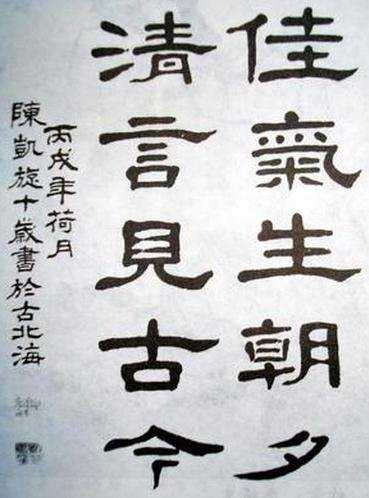 佳氣生朝夕
清言見古今
丙戌年荷月
陳凱旋十歲書於古北海